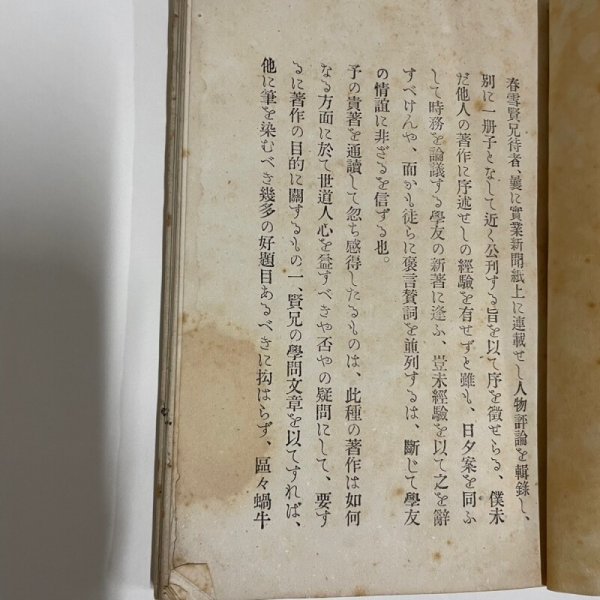 春雪賢兄待者、曩に實業新聞紙上に連載せし人物評論を輯錄し、
別に一册子となして近く公刊する旨を以て序を徵せらる、僕未
だ他人の著作に序述せしの經驗を有せずと雖も、日夕案を同ふ
して時務を論議する學友の新著に逢ふ、豈未經驗を以て之を辭
すべけんや、而かも徒らに褒言賛詞を並列するは、斷じて學友
の情誼に非ざるを信ずる也。
予の貴著を通讀して忽ち感得したるものは、此種の著作は如何
なる方面に於て世道人心を益すべきや否やの疑問にして、要す
るに著作の目的に關するもの一、賢兄の學問文章を以てすれば、
他に筆を染むべき幾多の好題目あるべきに拘はらず、區々蝸牛